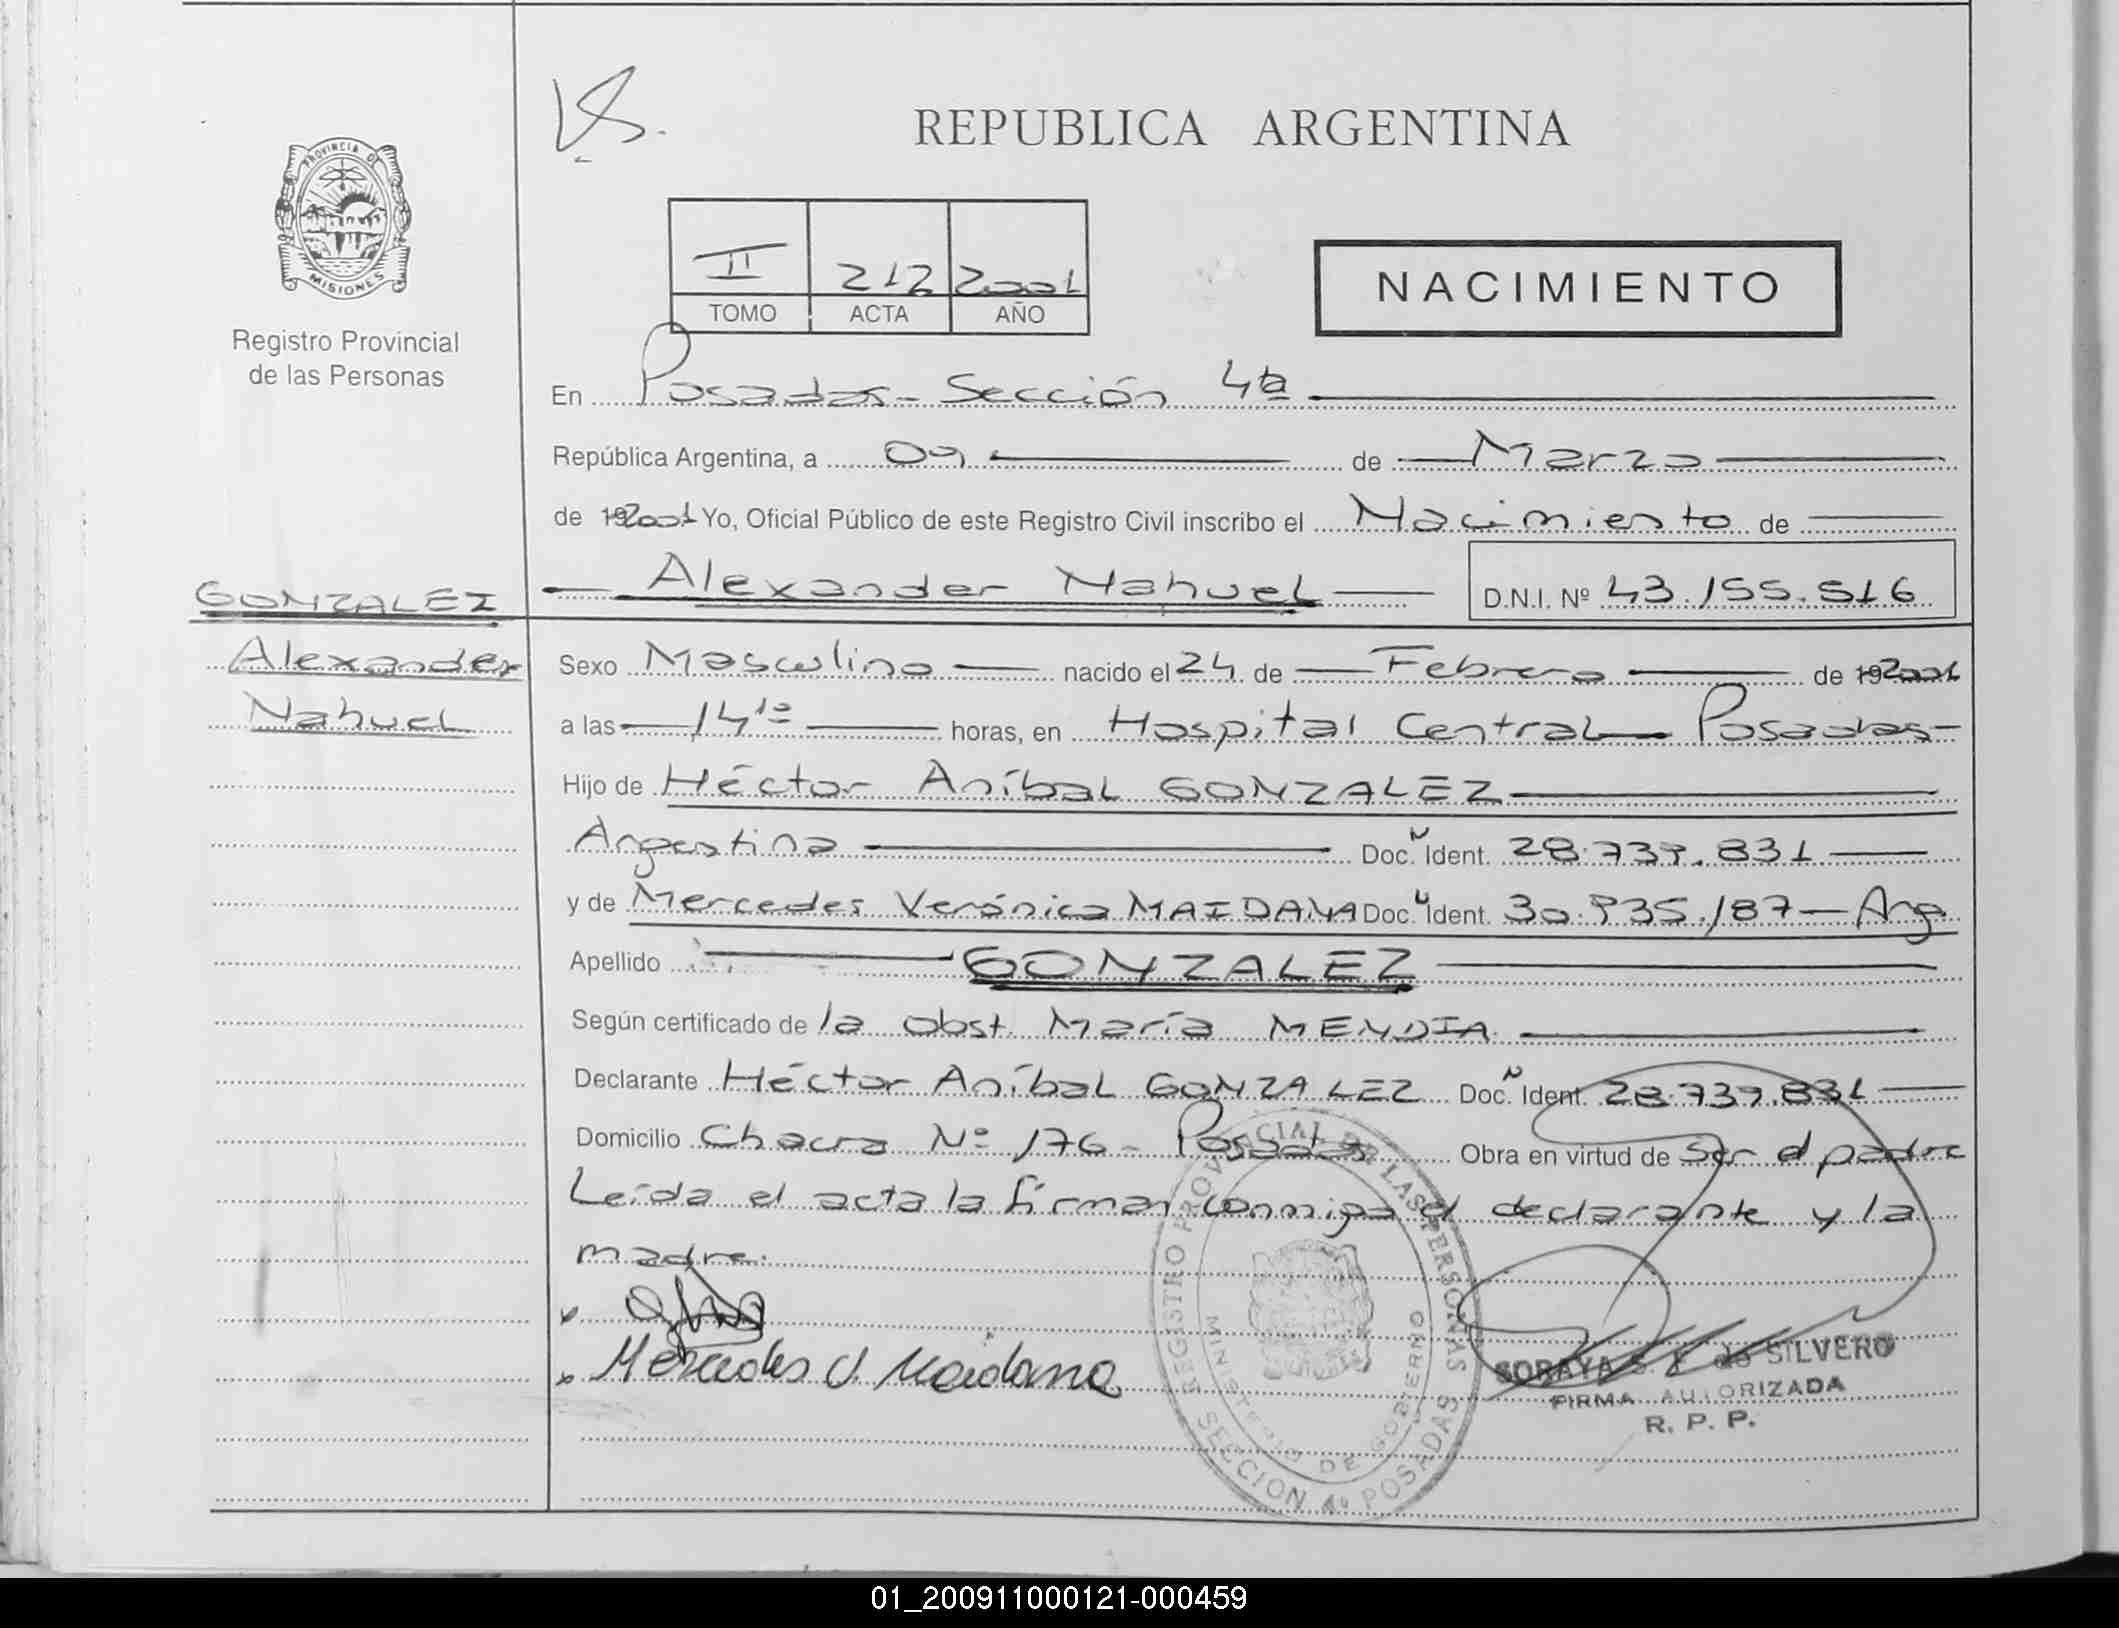 REPUBLICA ARGENTINA
PROVINCIA DE
MISIONES
Registro Provincial
de las Personas
II 212 2001
TOMO ACTA AÑO
NACIMIENTO
En Posadas - Sección 4ta
República Argentina, a 09 de Marzo
de 2001 Yo, Oficial Público de este Registro Civil inscribo el Nacimiento de
GONZALEZ
Alexander Nahuel D.N.I. Nº 43.155.516
Alexander
Nahuel
Sexo Masculino nacido el 24 de Febrero de 2001
a las 14 horas, en Hospital Central - Posadas -
Hijo de Héctor Aníbal GONZALEZ
Argentina Doc. Ident. 28.739.831
y de Mercedes Verónica MAIDANA Doc. Ident. 30.935.187 - Arg.
Apellido GONZALEZ
Según certificado de la obst. María MENDIA
Declarante Héctor Aníbal GONZALEZ Doc. Ident. 28.739.831
Domicilio Chacra Nº 176 - Posadas Obra en virtud de ser el padre
Leída el acta la firman conmigo el declarante y la
madre.
Mercedes V. Maidana
REGISTRO PROVINCIAL DE LAS PERSONAS
MINISTERIO DE GOBIERNO
SECCION 4º POSADAS
SORAYA S. de SILVERO
FIRMA AUTORIZADA
R. P. P.
01_200911000121-000459